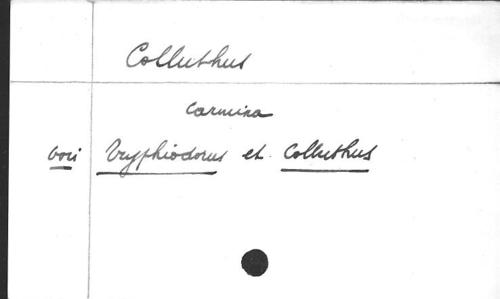 Colluthus
Carmina
voir Tryphiodorus et Colluthus